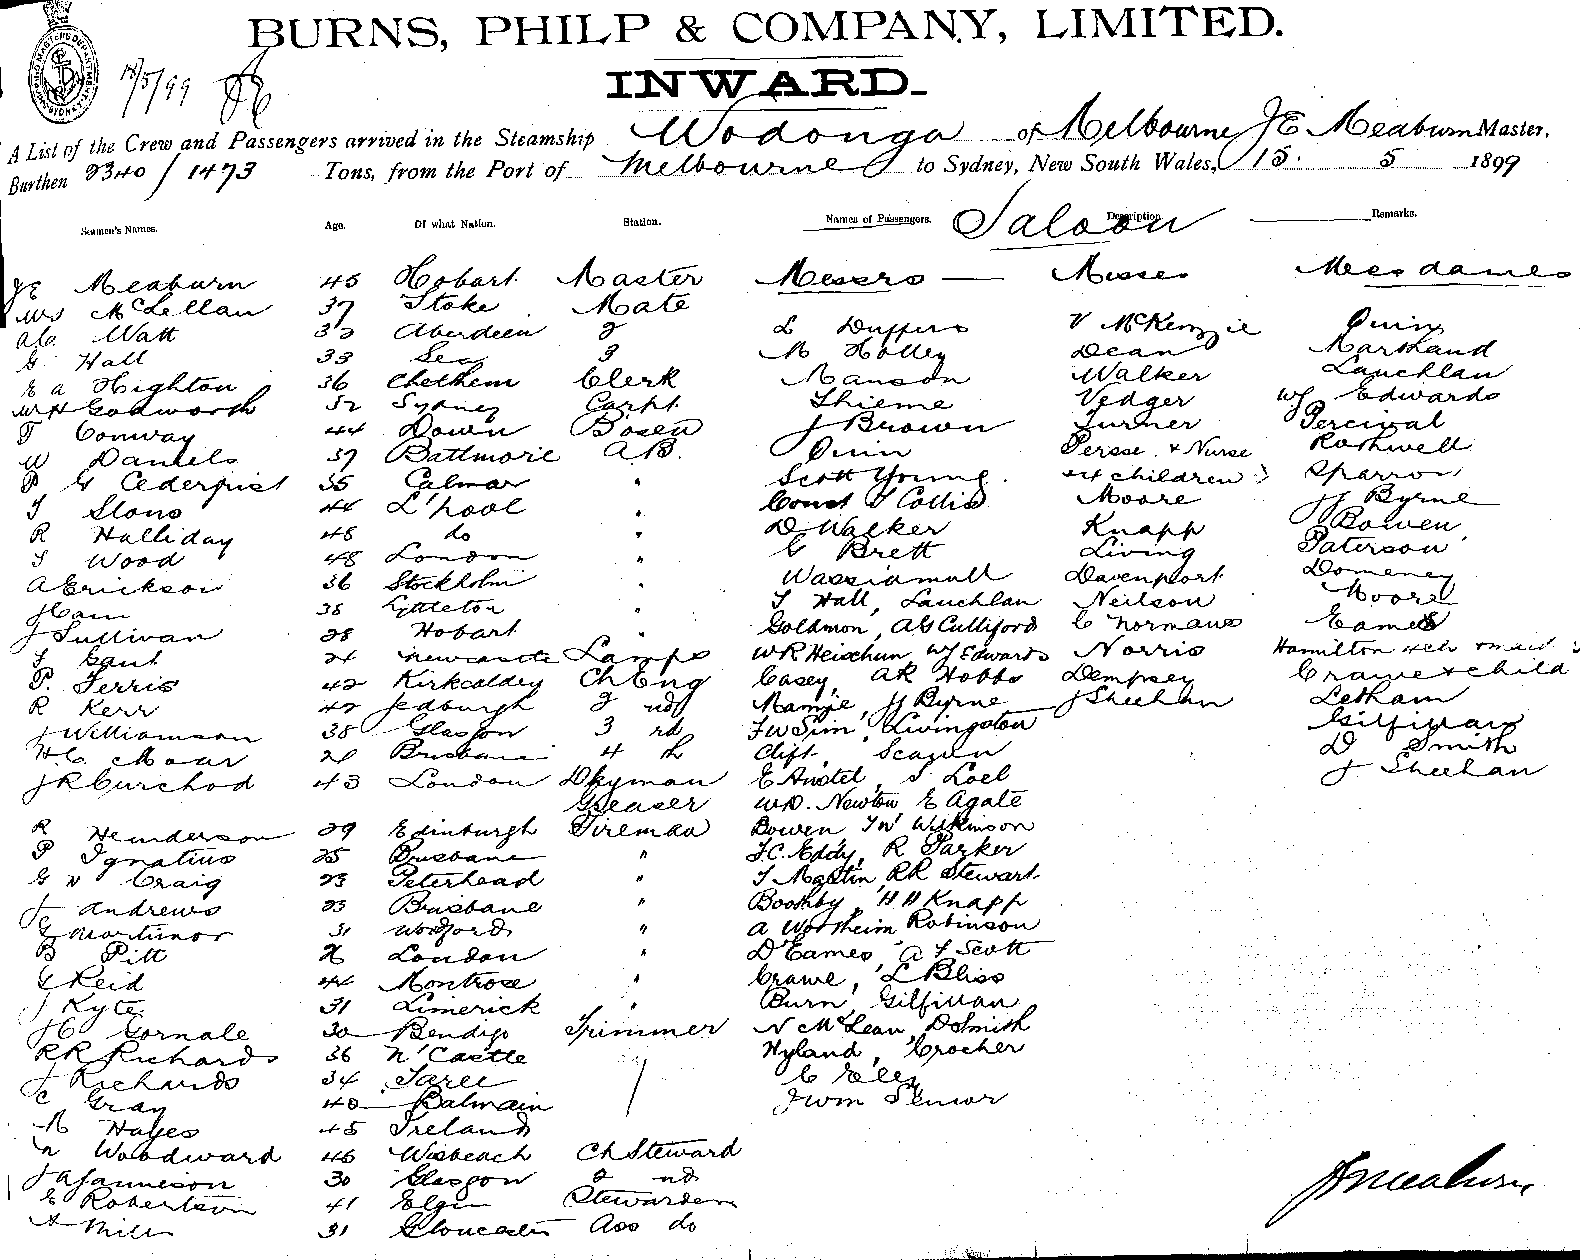 BURNS, PHILP & COMPANY, LIMITED.
15/5/99
INWARD.
A List of the Crew and Passengers arrived in the Steamship Wodonga of Melbourne JE Meaburn Master,
Burthen 2340 / 1473 Tons, from the Port of Melbourne to Sydney, New South Wales, 15. 5 1899
Seamen's Names. Age. Of what Nation. Station. Names of Passengers. Saloon Description. Remarks.
JE Meaburn 45 Hobart Master Messrs — Misses Mesdames
Wm McLellan 37 Stoke Mate
Alx. Watt 32 Aberdeen 2 L Duffers V McKenzie Quin
G. Hall 33 Sea 3 M Holley Dean Marshand
E A Highton 36 Chethem Clerk Manson Walker Lauchlan
WH Godworth 52 Sydney Carpt. Thieme Vedger WJ Edwards
T Conway 44 Down Bosen J Brown Turner Percival
W Daniels 39 Baltmore A.B. Quin Persse + Nurse Rothwell
P G Cederquist 35 Calmar " Scott Young + 4 children Sparrow
T Slons 44 L'pool " Const T Collis Moore JJ Byrne
R Halliday 48 do " D Walker Knapp Bowen
T Wood 48 London " G Brett Living Paterson
A Erickson 36 Stockholm " Wassiamull Davenport Domeney
J Cain 38 Lyttleton " T Hall, Lauchlan Neilson Moore
J Sullivan 28 Hobart " Goldmon, AG Culliford C Normans Eames
T Gaut 24 Newcastle Lamps WR Heischun WJ Edwards Norris Hamilton
P. Ferris 42 Kirkcaldey Ch Eng Casey, AR Hobbs Dempsey Crawe + child
R Kerr 42 Jedburgh 2 nd Mamie, JJ Byrne J Sheehan Letham
J Williamson 38 Glasgow 3 rd FW Sim, Livingston Gilfillan
H.C. Moar 29 Brisbane 4 th Clift, Seagen D Smith
JR Curchod 43 London Dkyman E Anstel, S Loel J Sheehan
Greaser WD. Newton E Agate
R Henderson 29 Edinburgh Fireman Bowen, TW Wilkinson
P Ignatius 25 Brisbane " F.C. Eddy, R Parker
G W Craig 23 Peterhead " T Martin RR Stewart
J Andrews 23 Brisbane " Boothby, H D Knapp
G Mortimor 31 Woodford " A Wortheim Robinson
B Pitt London " D Eames, A T Scott
G Reid 44 Montrose " Crawe, L Bliss
J Kyte 31 Limerick " Burn, Gilfillan
JC Gornale 30 Bendigo Trimmer N McLean, D Smith
RR Richards 36 N'Castle Hyland, Crocher
J Richards 34 Taree
C Gray 40 Balmain Jwm Senior
M Hayes 45 Ireland
Woodward 46 Wisbeach Ch Steward
JA Janneson 30 Glasgow 2 nd
E Robertson 41 Elgin Stewardess
A Mills 31 Gloucester Ass do
JE Meaburn